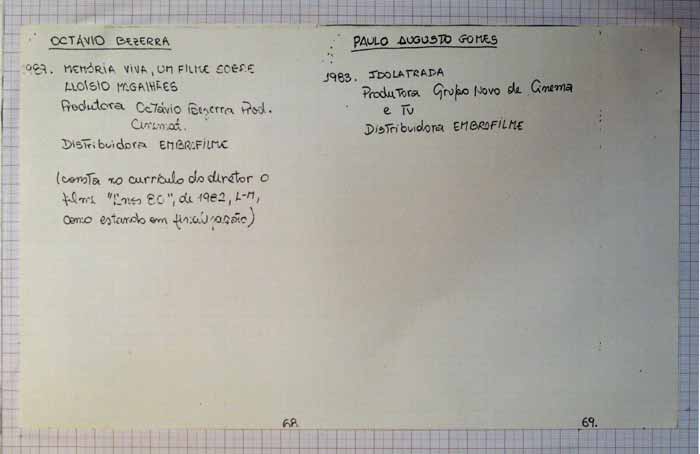 OCTÁVIO BEZERRA
987. MEMÓRIA VIVA, UM FILME SOBRE
ALOÍSIO MAGALHÃES
Produtora Octávio Bezerra Prod.
Cinemat.
Distribuidora EMBRAFILME
(consta no currículo do diretor o
filme "Anos 80", de 1982, L-M,
como estando em finalização)
68.
PAULO AUGUSTO GOMES
1983. IDOLATRADA
Produtora Grupo Novo de Cinema
e TV
Distribuidora EMBRAFILME
69.